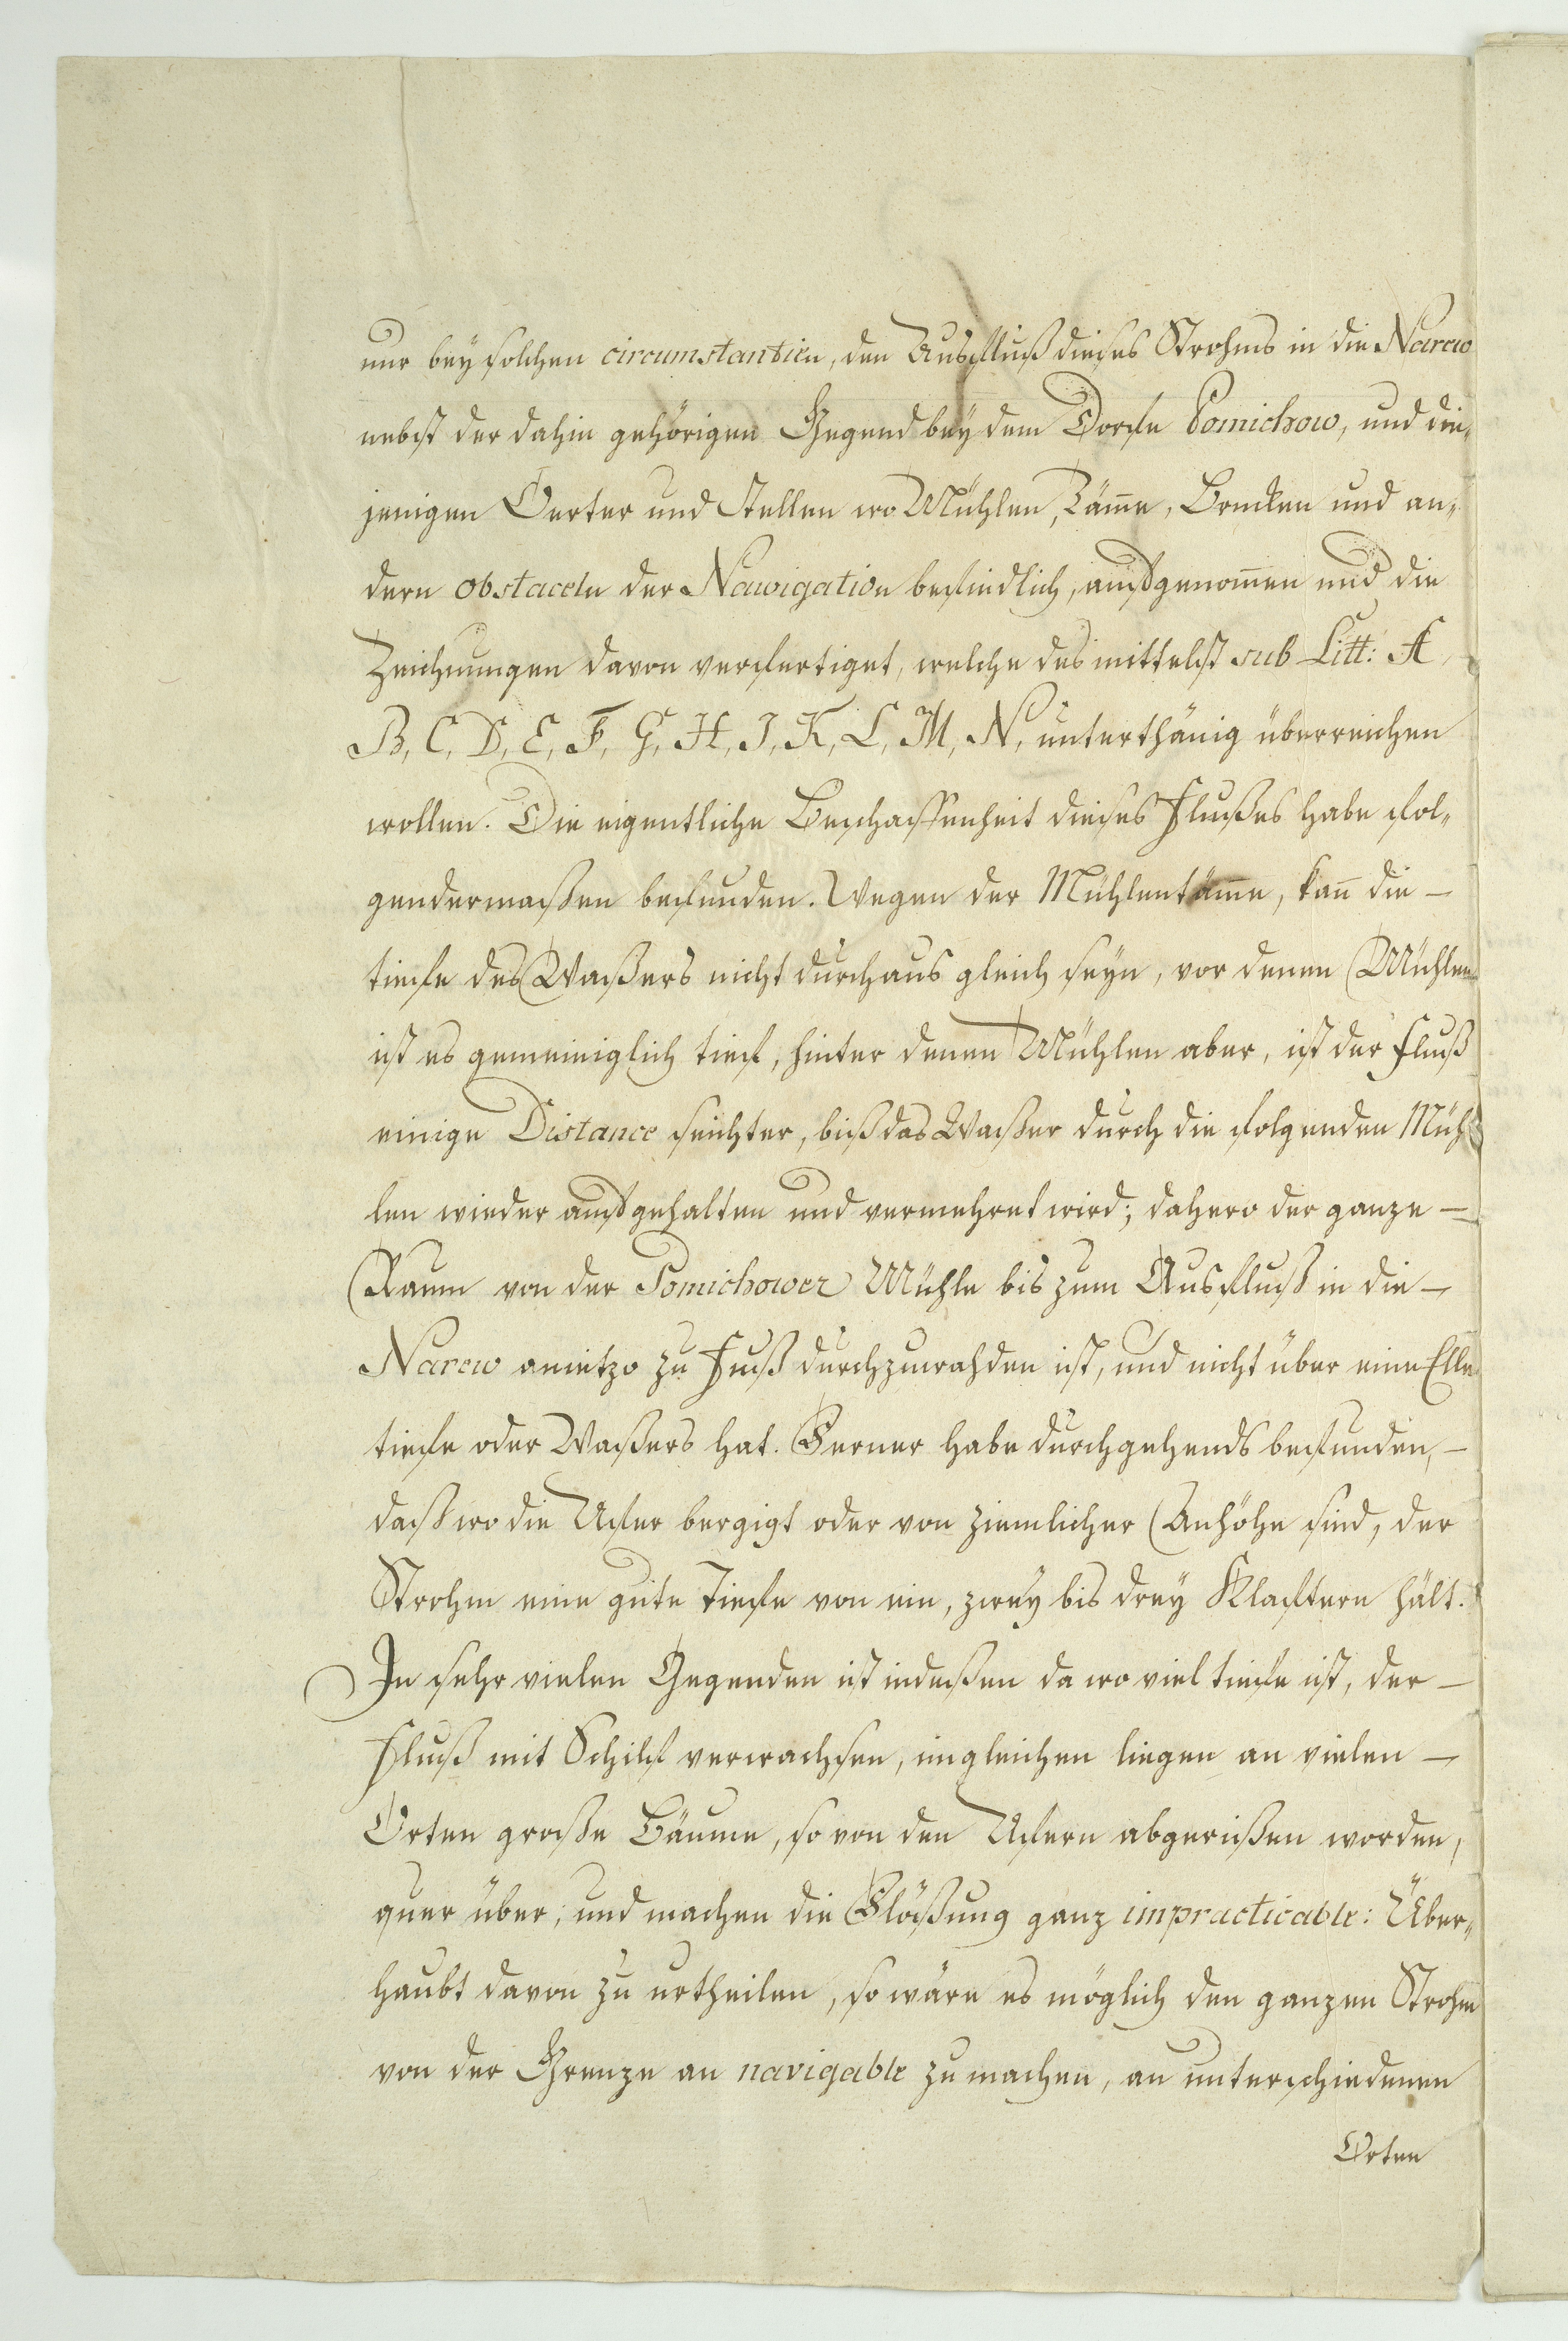 nur bey solchen circumstantien, den Ausfluß dieses Strohms in die Narew
nebst der dahin gehörigen Gegend bey dem Dorfe Pomichow, und die„
jenigen Oerter und Stellen wo Mühlen, Täm̄e, Brucken und an„
dern obstaceln der Nawigation befindlich, aufgenom̄en und die
Zeichnungen davon verfertiget, welche desmittelst sub Litt: A,
B, C, D, E, F, G, H, J, K, L, M, N, unterthänig überreichen
wollen. Die eigentliche Beschaffenheit dieses Flußes habe fol„
gendermaßen befunden. Wegen der Mühlentäm̄e, kan̄ die –
tiefe des Waßers nicht durchaus gleich seyn, vor denen Mühlen
ist es gemeiniglich tief, hinter denen Mühlen aber, ist der Fluß
einige Distance seichter, biß das Waßer durch die folgenden Müh
len wieder aufgehalten und vermehret wird; dahero der ganze –
Raum von der Pomichower Mühle bis zum Ausfluß in die –
Narew anietzo zu Fuß durchzuwahden ist, und nicht über eine Elle
tiefe oder Waßers hat. Ferner habe durchgehends befunden, –
daß wo die Ufer bergigt oder von ziemlicher Anhöhe sind, der
Strohm eine gute Tiefe von ein, zwey bis drey Klaftern hält.
In sehr vielen Gegenden ist indeßen da wo viel tiefe ist, der –
Fluß mit Schilf verwachsen, imgleichen liegen an vielen –
Orten große Bäume, so von den Ufern abgerißen worden,
quer über, und machen die Flößung ganz impracticable: Über„
haubt davon zu urtheilen, so wäre es möglich den ganzen Strohm
von der Grenze an navigable zu machen, an unterschiedenen
Orten